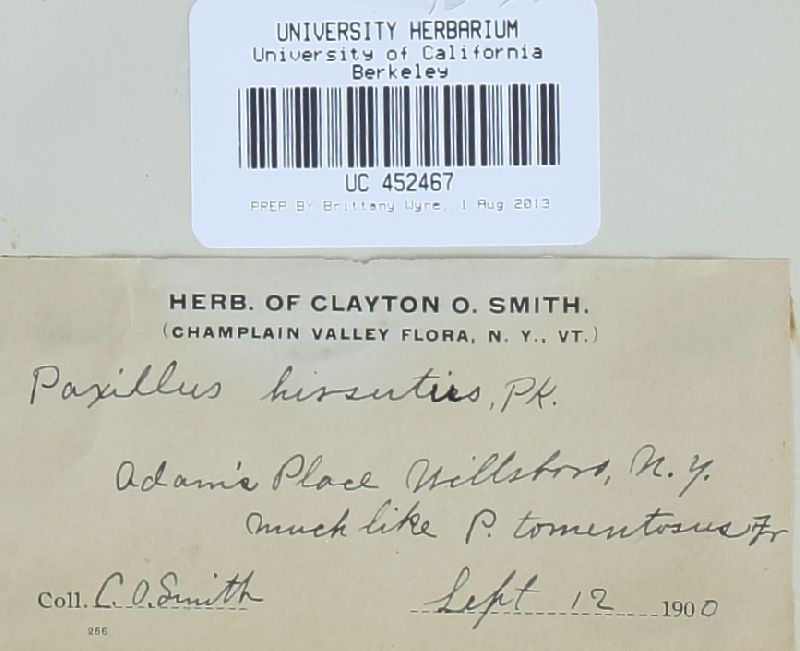 UNIVERSITY HERBARIUM
University of California
Berkeley
UC 452467
PREP BY Brittany Wyre, 1 Aug 2013
HERB. OF CLAYTON O. SMITH.
(CHAMPLAIN VALLEY FLORA, N. Y., VT.)
Paxillus hirsutus, Pk.
Adam's Place Willsboro, N. Y.
much like P. tomentosus Fr
Coll. C. O. Smith Sept 12 1900
256